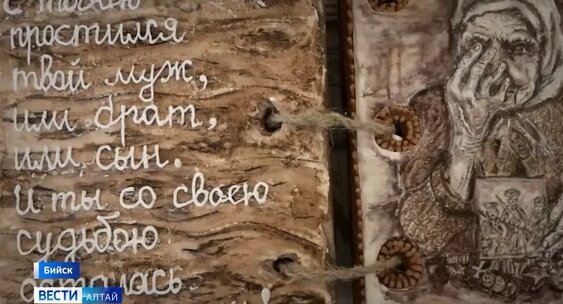 с тобою
простился
твой муж,
или брат,
или сын.
И ты со своею
судьбою
осталась
Бийск
ВЕСТИ АЛТАЙ